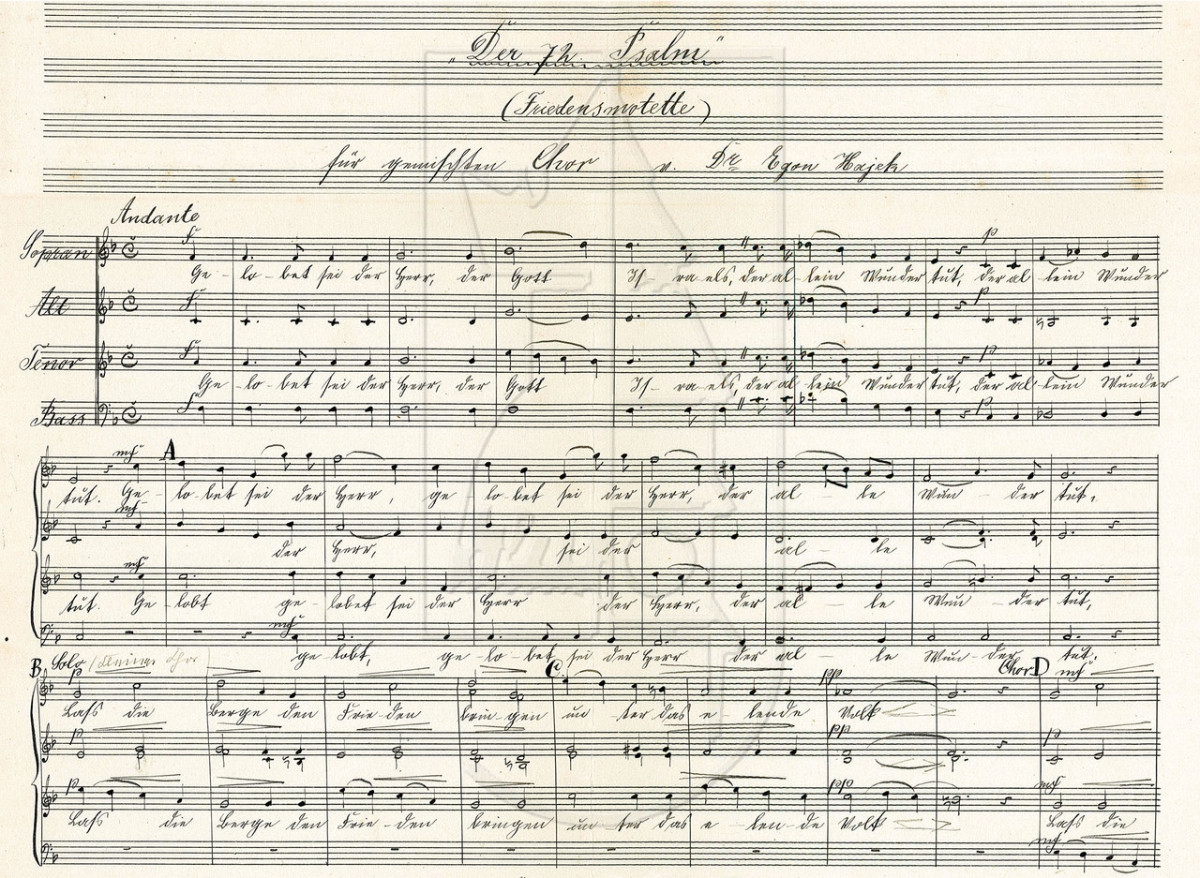 „Der 72. Psalm"
(Friedensmotette)
für gemischten Chor v. Dr Egon Hajek
Andante
Sopran f p
Ge - lo - bet sei der Herr, der Gott Is - ra - els, der al - lein Wunder tut, der al - lein Wunder
Alt f p
Tenor f p
Ge - lo - bet sei der Herr, der Gott Is - ra - els, der al - lein Wunder tut, der al - lein Wunder
Bass f p
mf A
tut. Ge - lo - bet sei der Herr, ge - lo - bet sei der Herr, der al - le Wun - der tut,
mf
der Herr, sei der al - le
mf
tut. Ge - lobt ge - lobet sei der Herr der Herr, der al - le Wun - der tut,
mf
ge - lobt, ge - lo - bet sei der Herr der al - le Wun - der tut.
B. Solo C. Chor D mf
p pp
Lass die Berge den Frie - den brin - gen un - ter das e - lende Volk
p pp p
p pp mf
Lass die Berge den Frie - den bringen un - ter das e - len - de Volk Lass die
mf